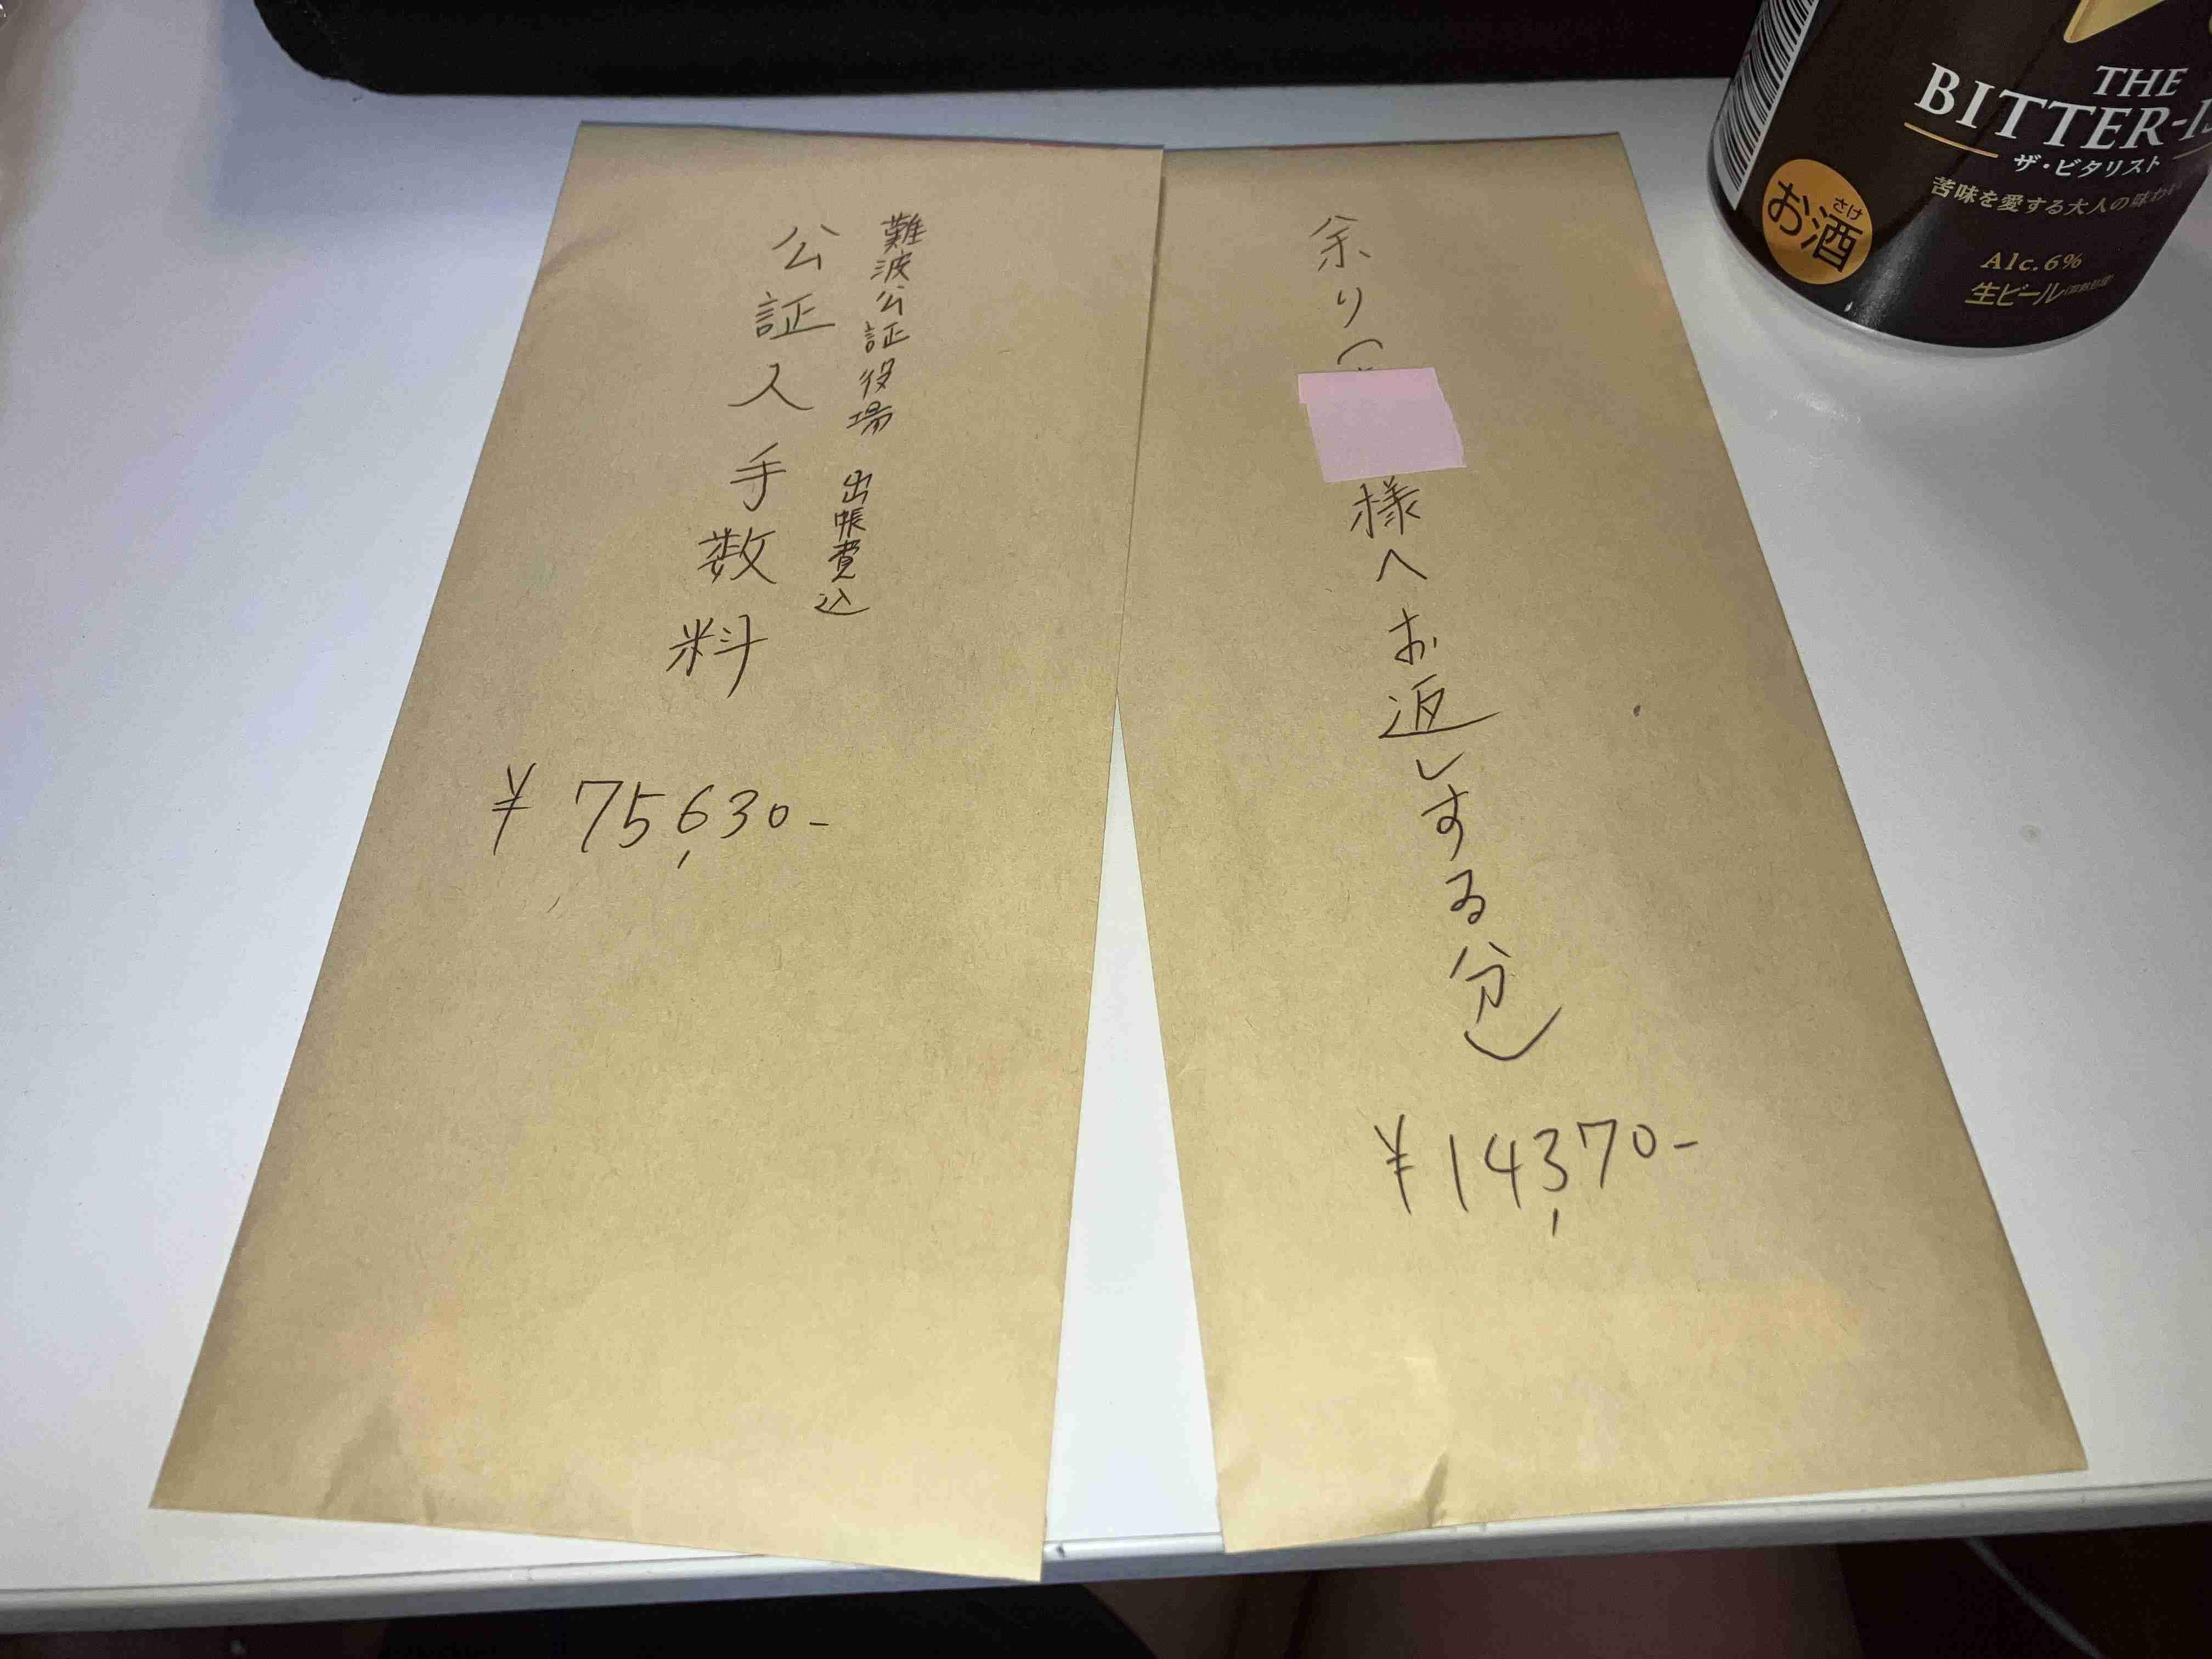 難波公証役場 出帳費込
公証人手数料
¥75,630-
余り(
様へお返しする分)
¥14,370-
THE
BITTER-
ザ・ビタリスト
苦味を愛する大人の味わ
さけ
お酒
Alc.6%
生ビール